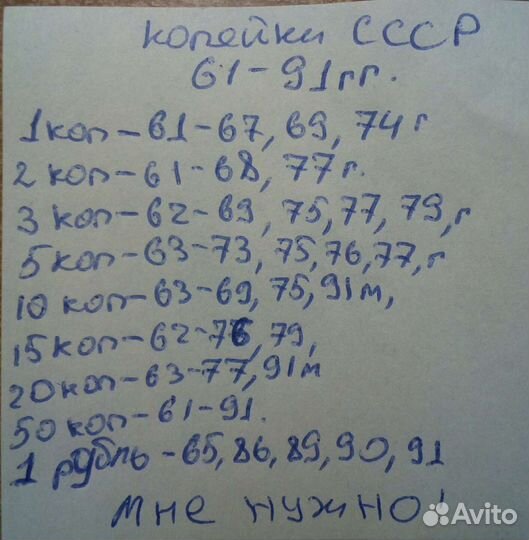 копейки СССР
61-91гг.
1 коп-61-67, 69, 74 г
2 коп-61-68, 77 г.
3 коп-62-69, 75, 77, 79, г
5 коп-63-73, 75, 76, 77, г
10 коп-63-69, 75, 91м,
15 коп-62-76, 79,
20 коп-63-77, 91м
50 коп-61-91.
1 рубль-65, 86, 89, 90, 91
мне нужно!
Avito